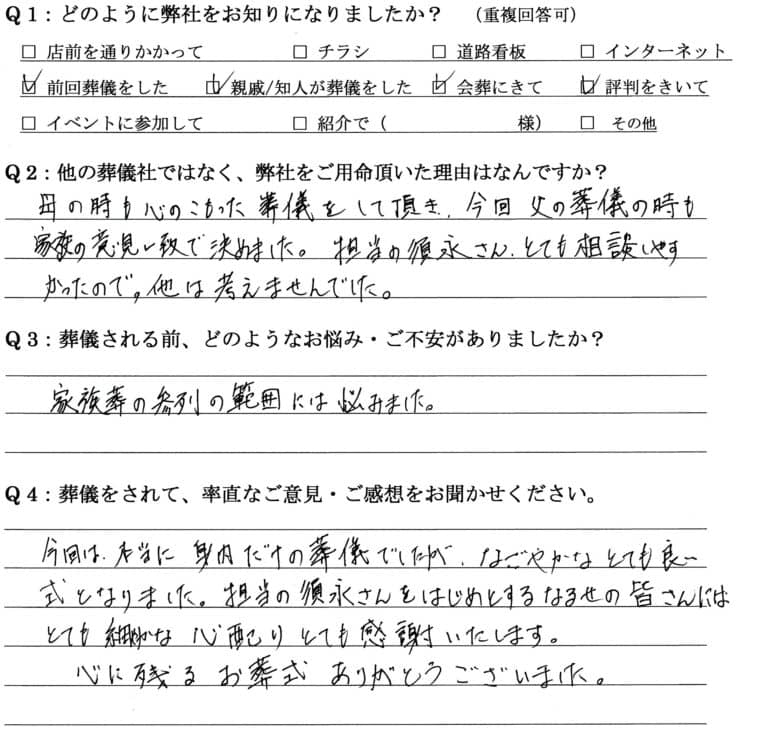 Q1：どのように弊社をお知りになりましたか？　（重複回答可）
□ 店前を通りかかって　□ チラシ　□ 道路看板　□ インターネット
☑ 前回葬儀をした　☑ 親戚/知人が葬儀をした　☑ 会葬にきて　☑ 評判をきいて
□ イベントに参加して　□ 紹介で（　　　　　　様）　□ その他
Q2：他の葬儀社ではなく、弊社をご用命頂いた理由はなんですか？
母の時も心のこもった葬儀をして頂き、今回父の葬儀の時も
家族の意見一致で決めました。担当の須永さん、とても相談しやす
かったので、他は考えませんでした。
Q3：葬儀される前、どのようなお悩み・ご不安がありましたか？
家族葬の参列の範囲には悩みました。
Q4：葬儀をされて、率直なご意見・ご感想をお聞かせください。
今回は、本当に身内だけの葬儀でしたが、なごやかなとても良い
式となりました。担当の須永さんをはじめとするなるせの皆さんには
とても細やかな心配りとても感謝いたします。
心に残るお葬式ありがとうございました。